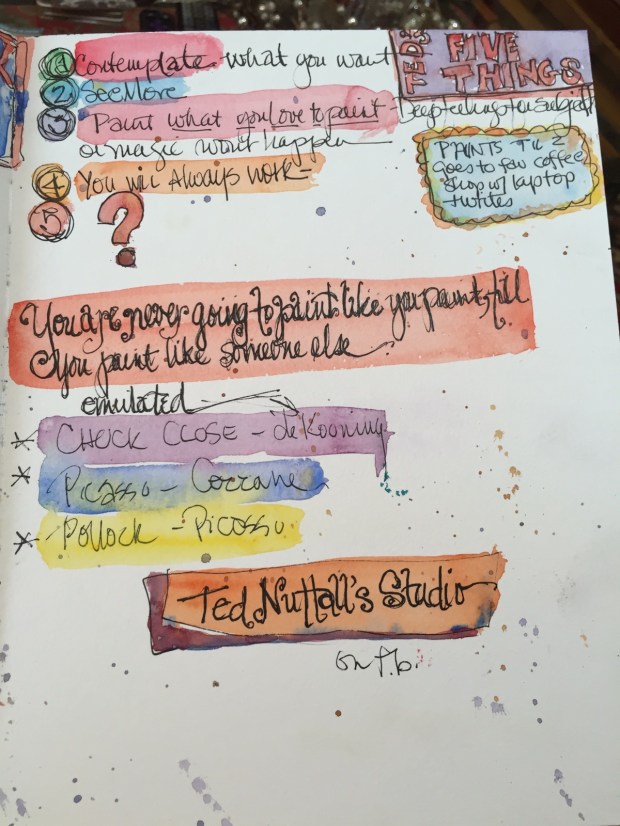 TED'S FIVE THINGS
1 Contemplate - what you want
2 See More
3 Paint what you Love to paint
or magic won't happen
4 You will Always work -
5 ?
Deep feeling to
PAINTS TIL 2
Goes to fav coffee
shop w/ laptop
+ writes
You are never going to paint like you paint, till
you paint like someone else
emulated
* CHUCK CLOSE - deKooning
* Picasso - Cezzane
* Pollock - Picasso
Ted Nuttall's Studio
on f.b.